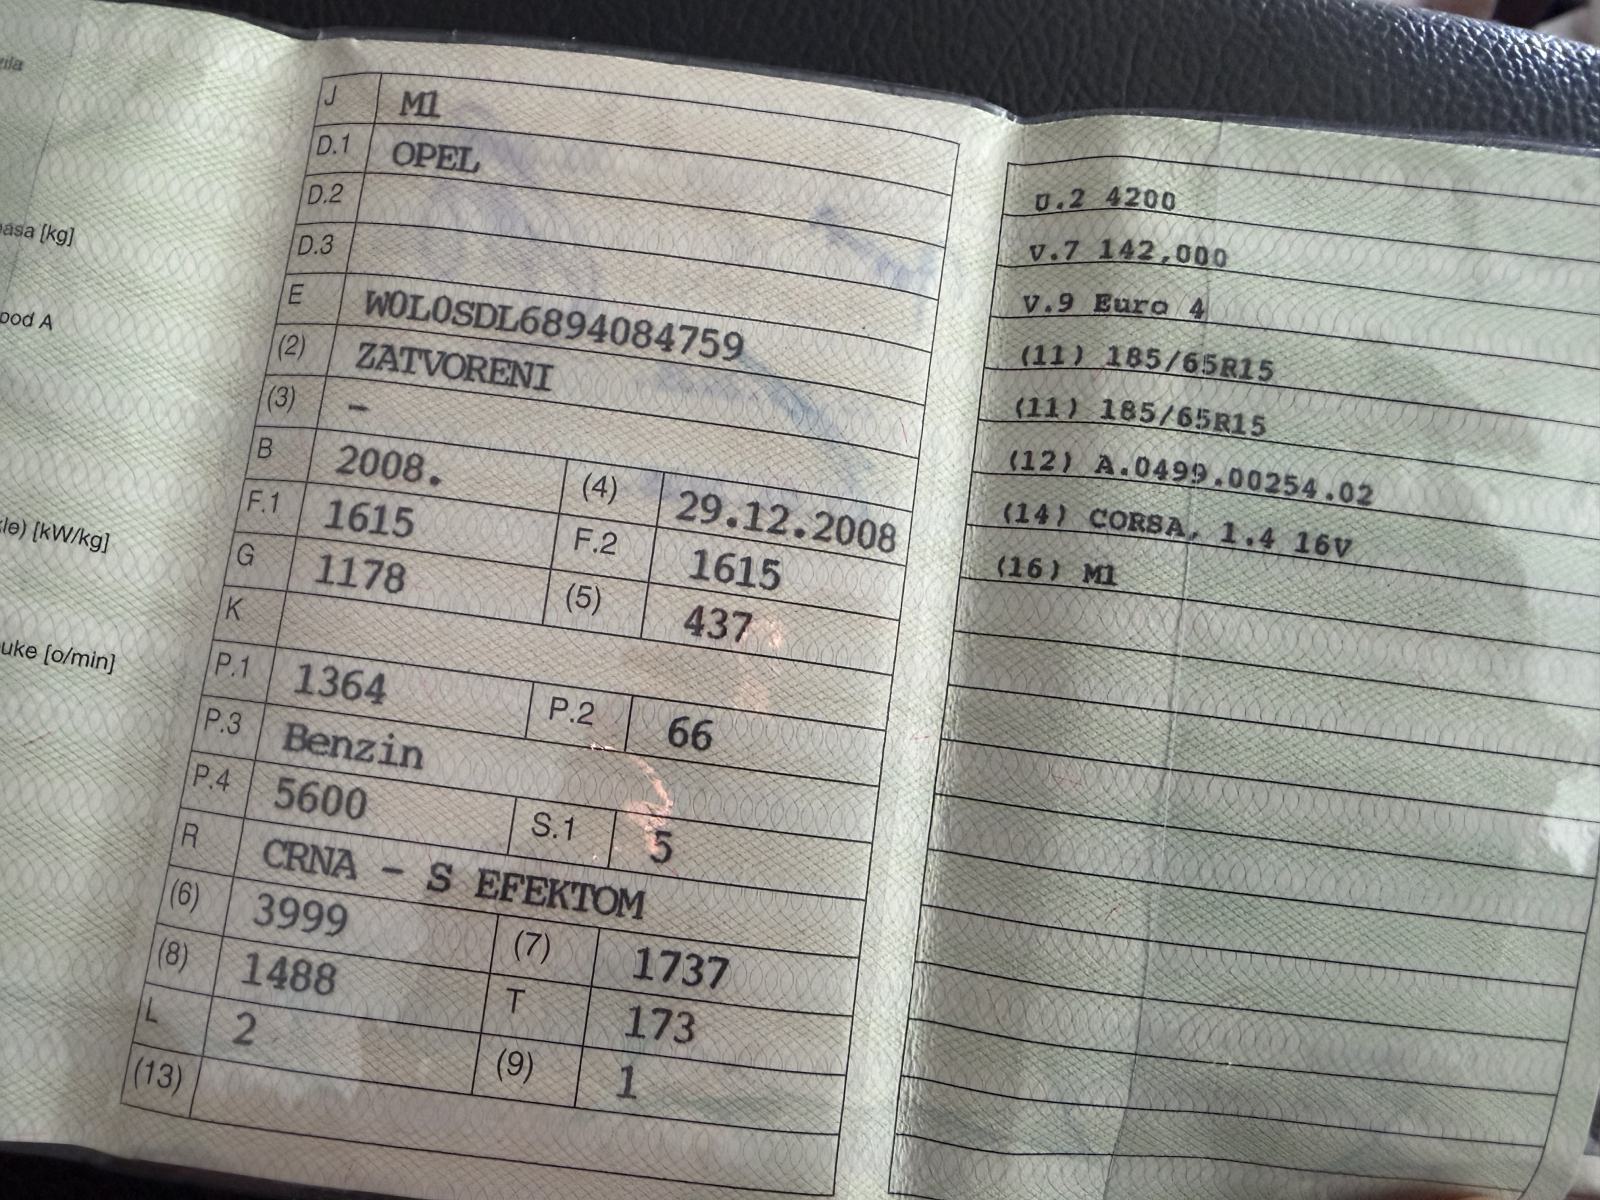 zila
masa [kg]
pod A
kle) [kW/kg]
uke [o/min]
J M1
D.1 OPEL
D.2
D.3
E W0L0SDL6894084759
(2) ZATVORENI
(3) -
B 2008. (4) 29.12.2008
F.1 1615 F.2 1615
G 1178 (5) 437
K
P.1 1364 P.2 66
P.3 Benzin
P.4 5600 S.1 5
R CRNA - S EFEKTOM
(6) 3999 (7) 1737
(8) 1488 T 173
L 2 (9) 1
(13)
U.2 4200
V.7 142,000
V.9 Euro 4
(11) 185/65R15
(11) 185/65R15
(12) A.0499.00254.02
(14) CORSA, 1.4 16V
(16) M1